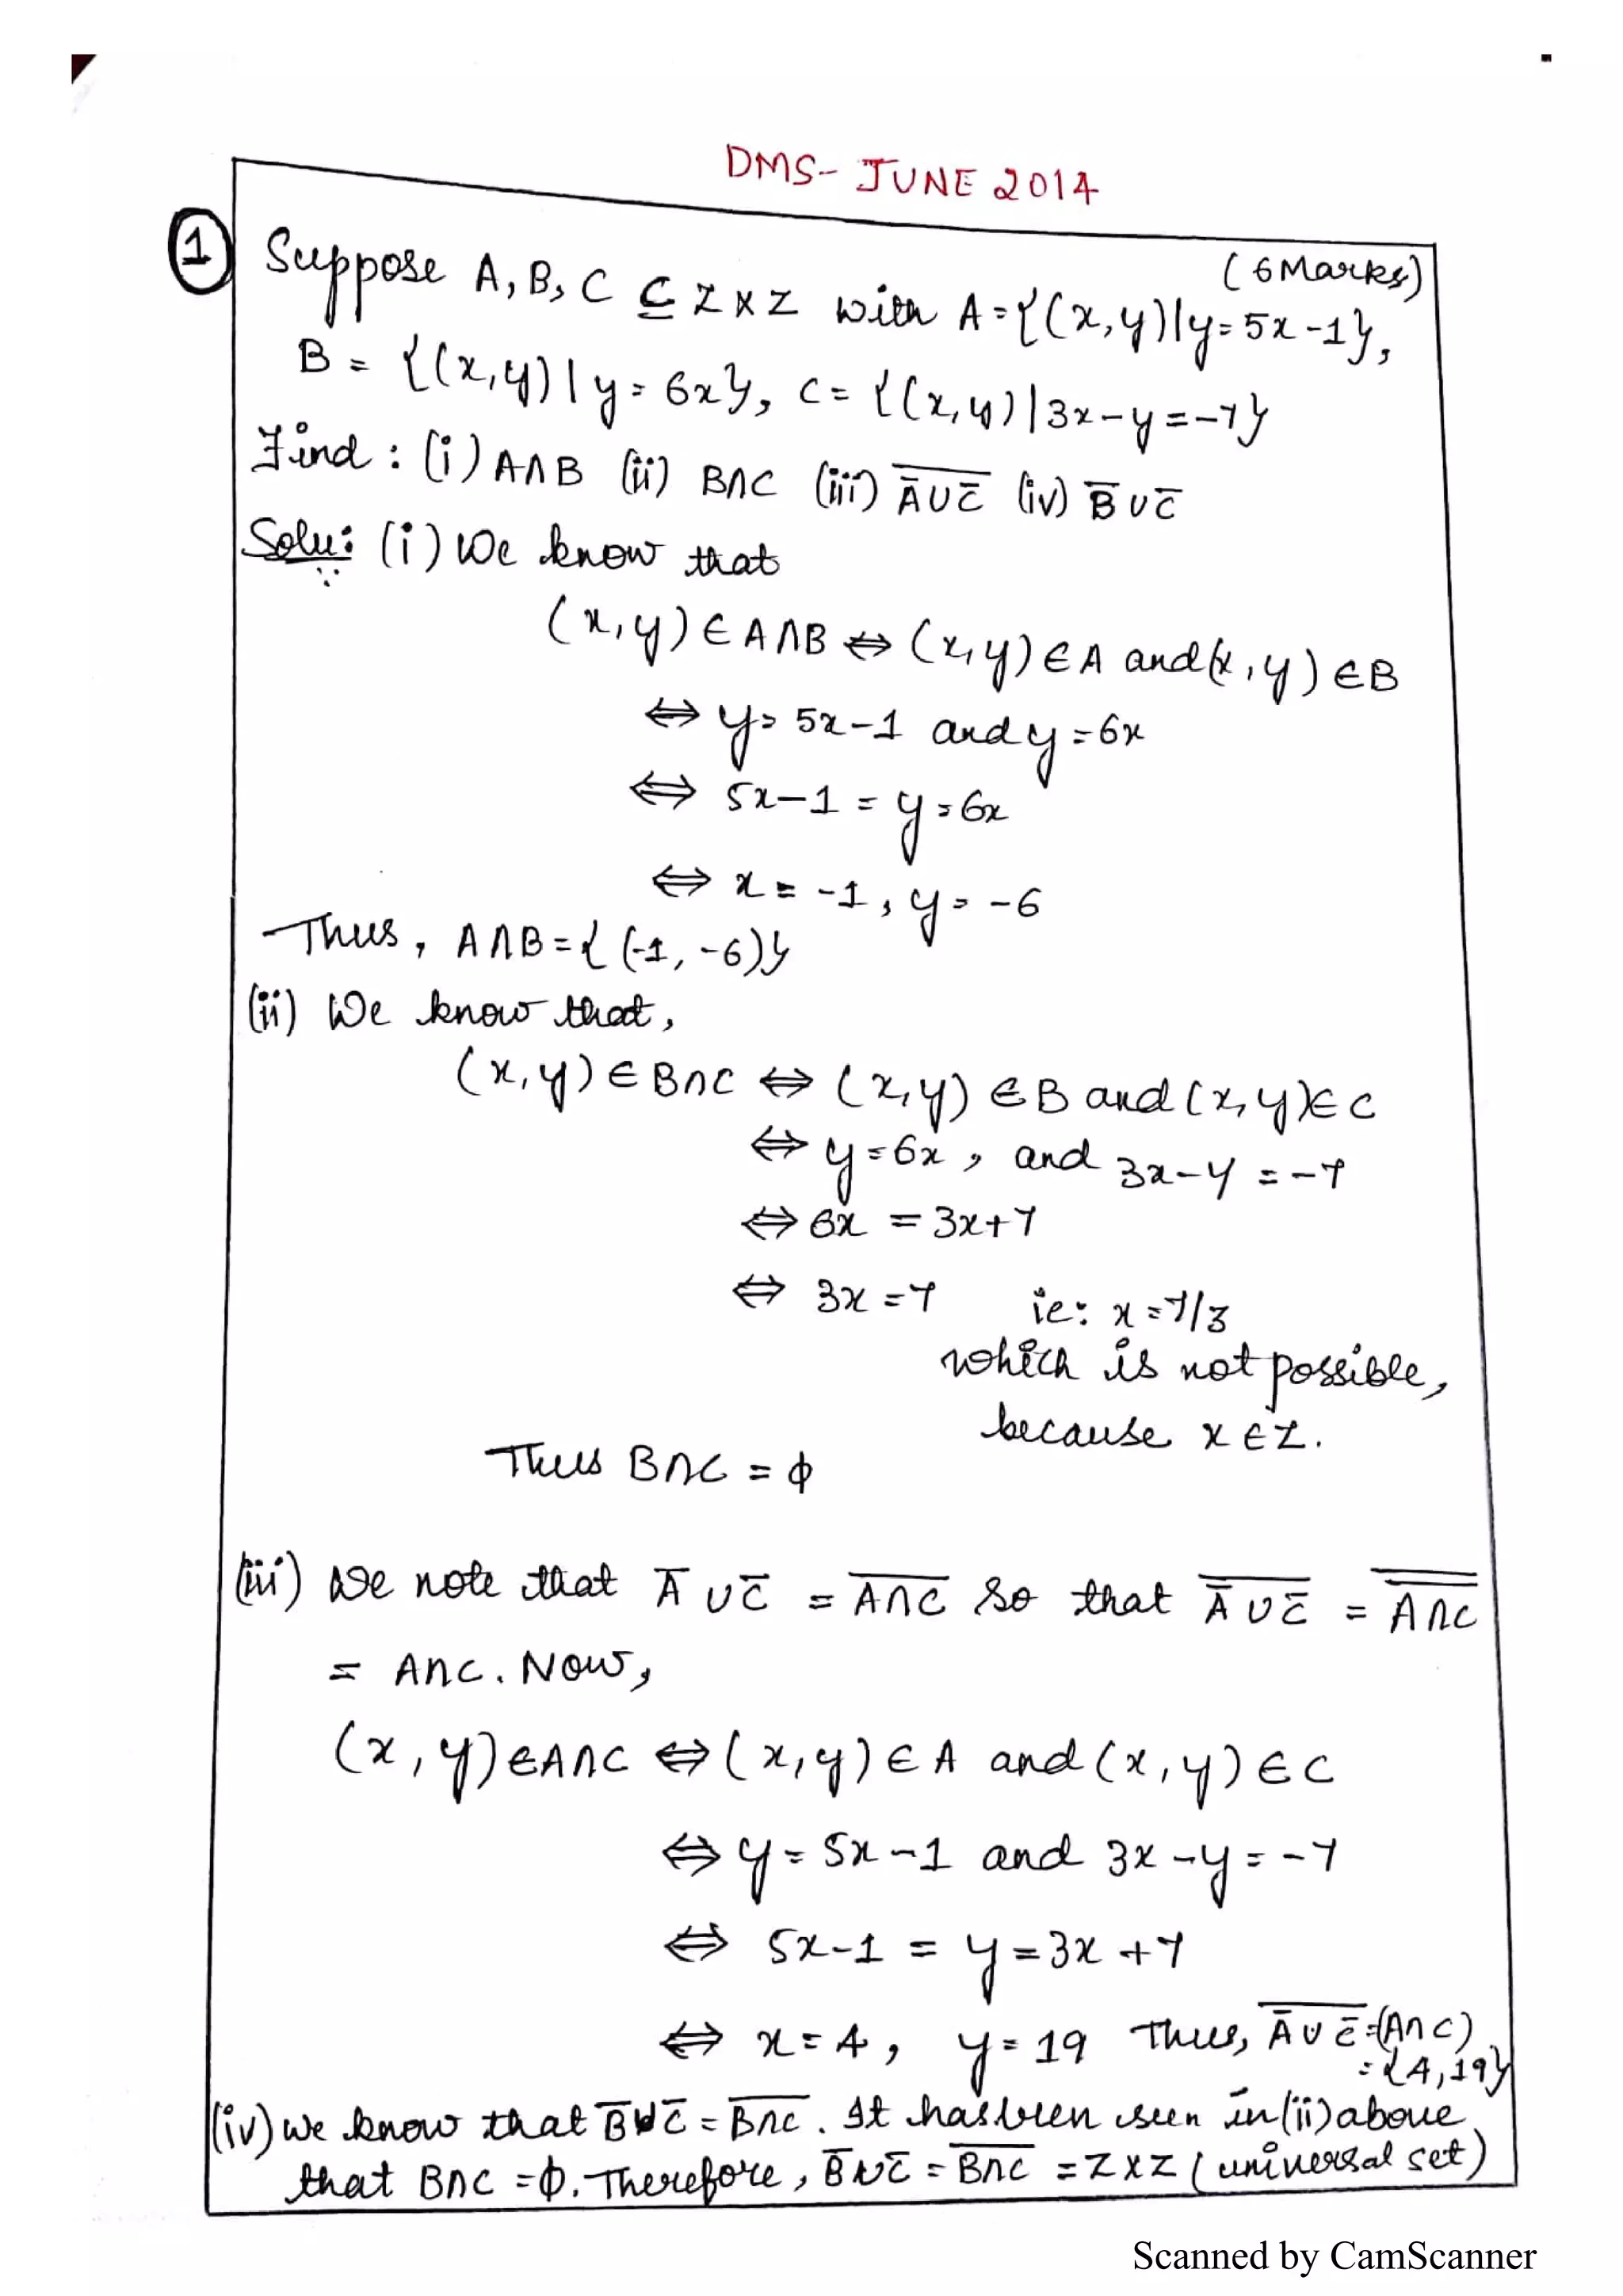 DMS- JUNE 2014
(6 Marks)
① Suppose A, B, C ⊆ Z×Z with A={(x,y)|y=5x-1},
B = {(x,y)|y=6x}, C={(x,y)|3x-y=-7}
Find : (i) A∩B (ii) B∩C (iii) \overline{A̅∪C̅} (iv) B̅∪C̅
Solu: (i) We know that
(x,y)∈A∩B ⇔ (x,y)∈A and (x,y)∈B
⇔ y=5x-1 and y=6x
⇔ 5x-1=y=6x
⇔ x=-1, y=-6
Thus, A∩B={(-1,-6)}
(ii) We know that,
(x,y)∈B∩C ⇔ (x,y)∈B and (x,y)∈C
⇔ y=6x, and 3x-y=-7
⇔ 6x=3x+7
⇔ 3x=7 ie: x=7/3
which is not possible,
because x∈Z.
Thus B∩C=ϕ
(iii) We note that A̅∪C̅ = \overline{A∩C} So that \overline{A̅∪C̅} = \overline{\overline{A∩C}}
= A∩C. Now,
(x,y)∈A∩C ⇔ (x,y)∈A and (x,y)∈C
⇔ y=5x-1 and 3x-y=-7
⇔ 5x-1=y=3x+7
⇔ x=4, y=19 Thus, \overline{A̅∪C̅}=(A∩C)
={4,19}
(iv) we know that B̅∪C̅ = \overline{B∩C}. It has been seen in (ii) above
that B∩C=ϕ. Therefore, B̅∪C̅ = \overline{B∩C} = Z×Z (universal set)
Scanned by CamScanner